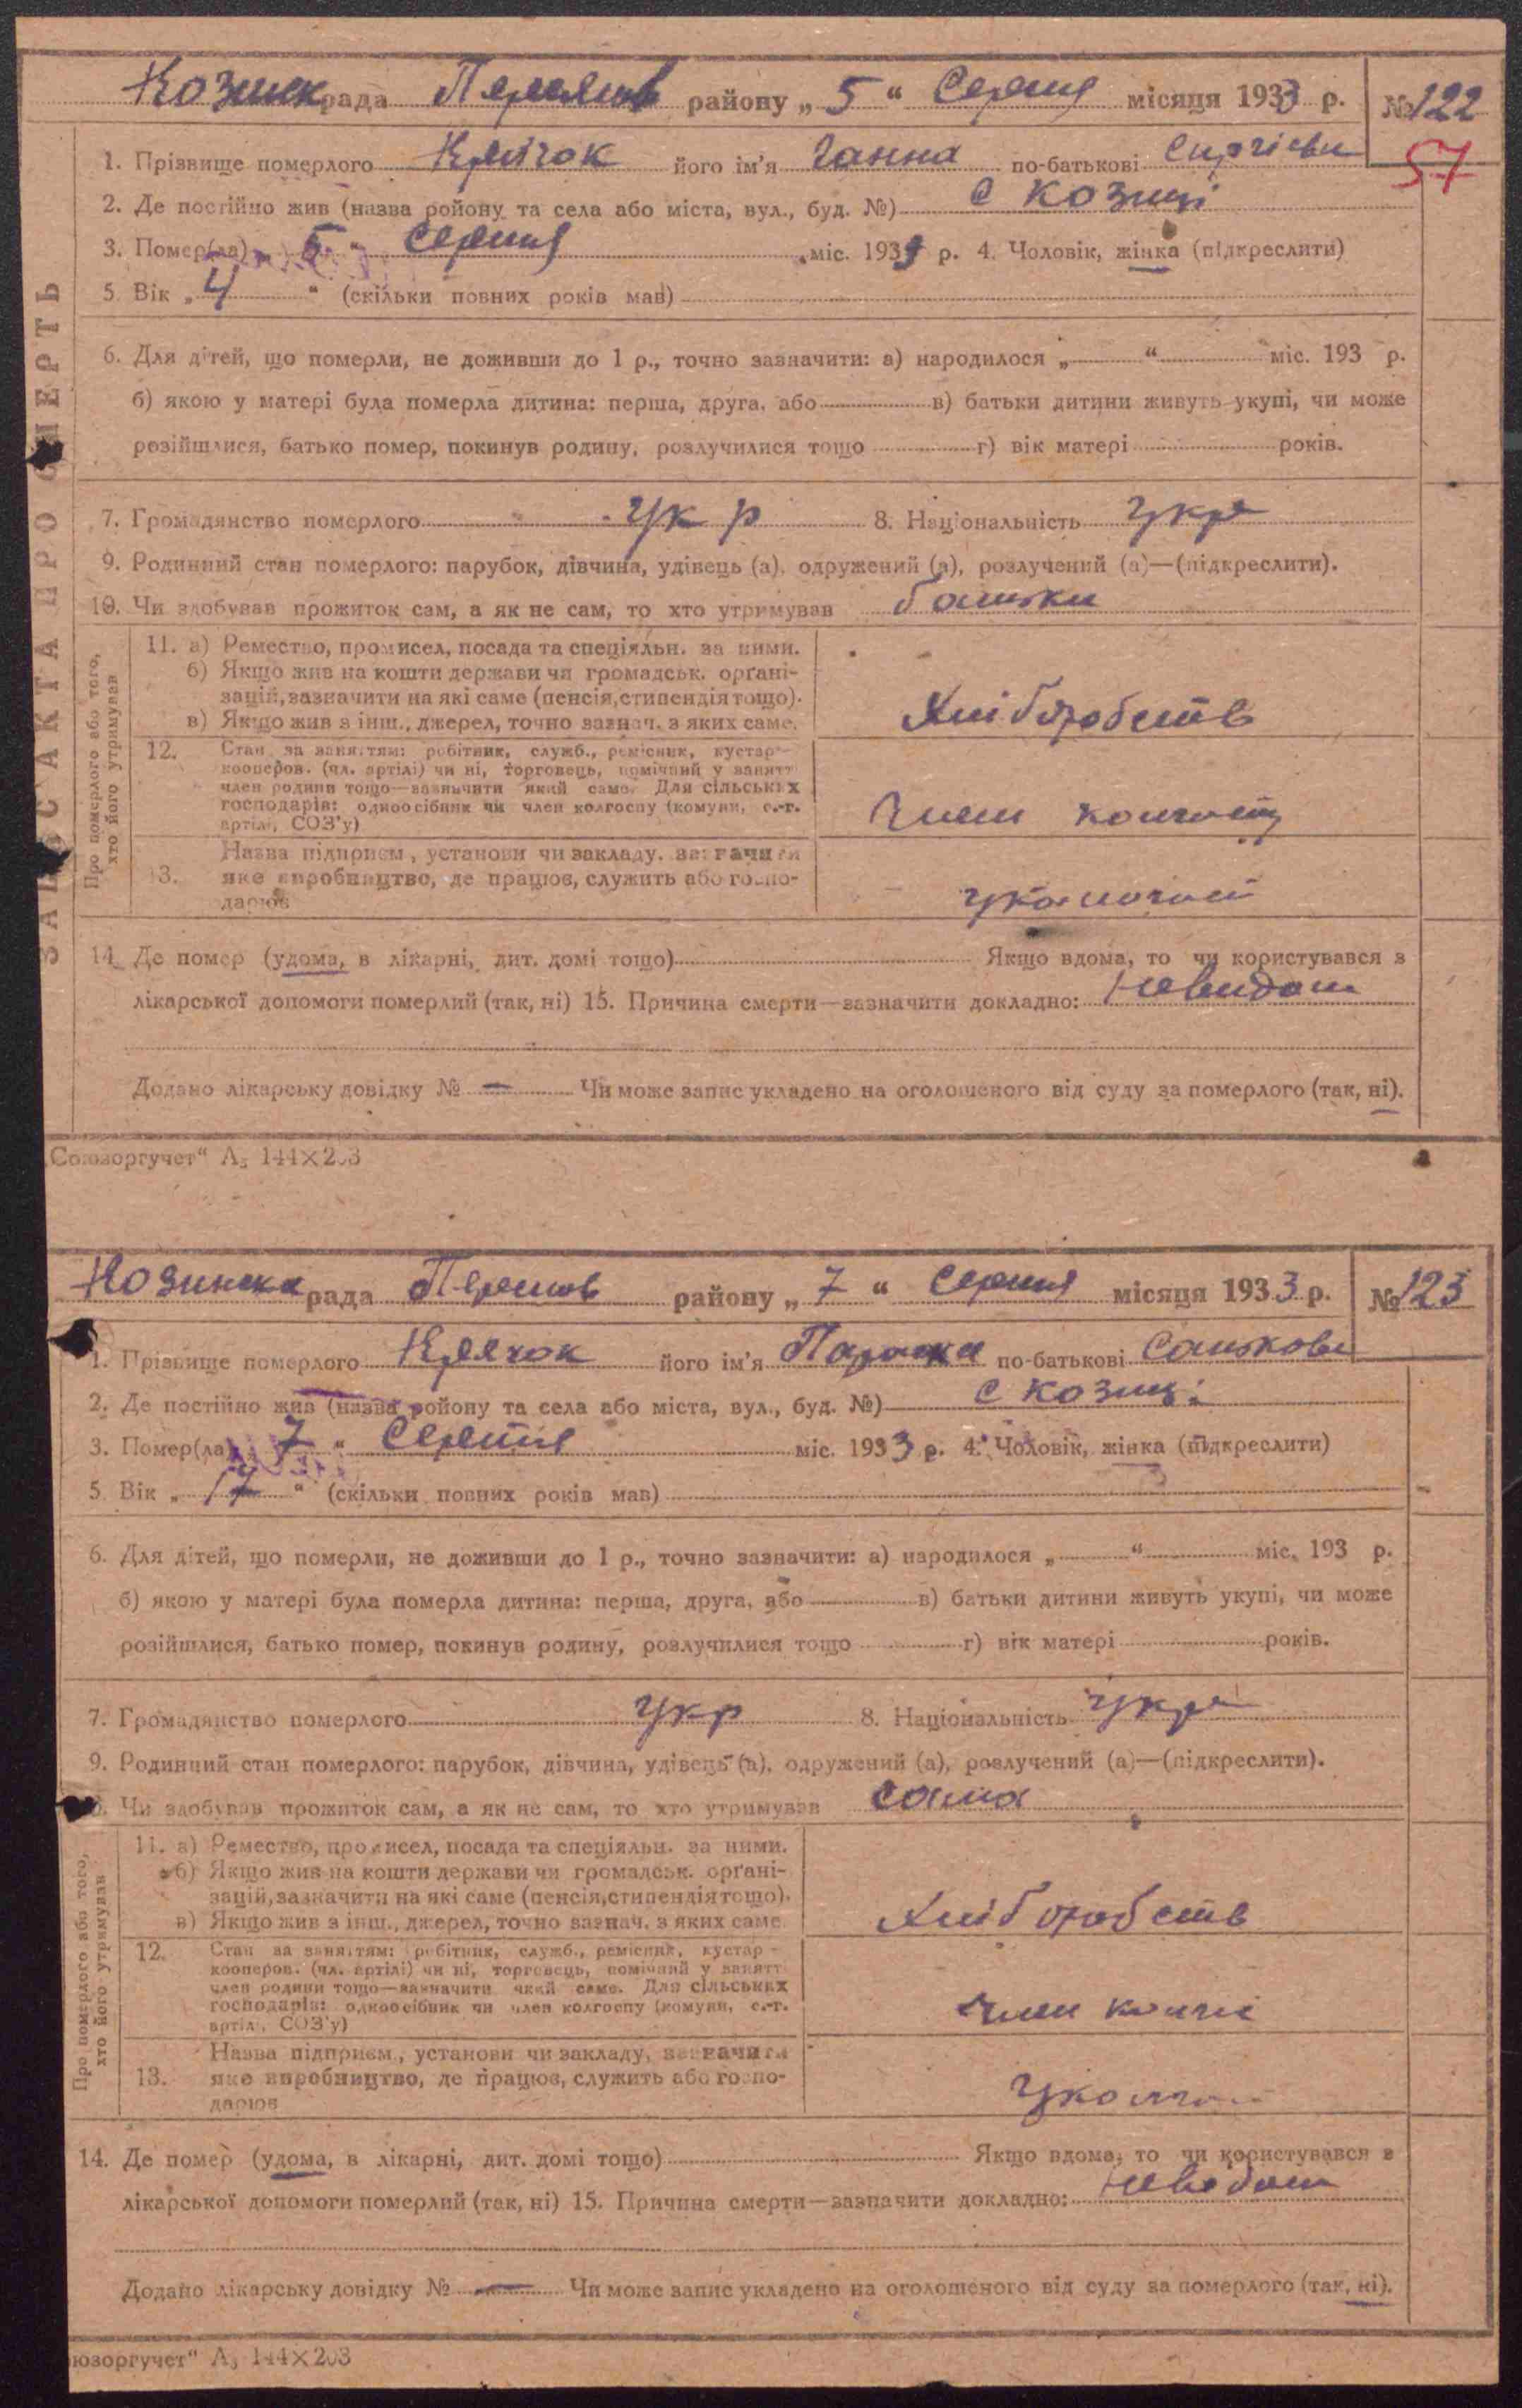 Козинск рада Переяслов району „ 5 “ Серпня місяця 1933 р. № 122
57
1. Прізвище померлого Крячок його ім'я Ганна по-батькові Сиргієвн
2. Де постійно жив (назва ройону та села або міста, вул., буд. №) с Козинці
3. Помер(ла) „ 5 “ Серпня міс. 1933 р. 4. Чоловік, жінка (підкреслити)
5. Вік „ 4 “ (скільки повних років мав)
6. Для дітей, що померли, не доживши до 1 р., точно зазначити: а) народилося „ “ міс. 193 р.
б) якою у матері була померла дитина: перша, друга, або в) батьки дитини живуть укупі, чи може
розійшлися, батько помер, покинув родину, розлучилися тощо г) вік матері років.
7. Громадянство померлого Укр 8. Національність Укр
9. Родинний стан померлого: парубок, дівчина, удівець (а), одружений (а), розлучений (а)—(підкреслити).
10. Чи здобував прожиток сам, а як не сам, то хто утримував батьки
ЗАПИС АКТА ПРО СМЕРТЬ
Про померлого або того, хто його утримував
11. а) Ремество, промисел, посада та спеціяльн. за ними.
б) Якщо жив на кошти держави чи громадськ. орґані-
зацій, зазначити на які саме (пенсія, стипендія тощо).
в) Якщо жив з інш., джерел, точно зазнач. з яких саме.
Хліборобств
12. Стан за заняттям: робітник, служб., ремісник, кустар—
кооперов. (чл. артілі) чи ні, торговець, помічний у занятт
член родини тощо—зазначити який саме. Для сільських
господарів: одноосібник чи член колгоспу (комуни, с.-г.
артілі, СОЗ'у)
Член колгоспу
13. Назва підприєм., установи чи закладу, зазначити
яке виробництво, де працює, служить або госпо-
дарює
У колгоспі
14. Де помер (удома, в лікарні, дит. домі тощо) Якщо вдома, то чи користувався з
лікарської допомоги померлий (так, ні) 15. Причина смерти—зазначити докладно: Невидом
Додано лікарську довідку № — Чи може запис укладено на оголошеного від суду за померлого (так, ні).
„Союзоргучет“ А₅ 144×203
Козинска рада Переяслов району „ 7 “ Серпня місяця 1933 р. № 123
1. Прізвище померлого Крячок його ім'я Параска по-батькові Саньковн
2. Де постійно жив (назва ройону та села або міста, вул., буд. №) с Козинці
3. Помер(ла) „ 7 “ Серпня міс. 1933 р. 4. Чоловік, жінка (підкреслити)
5. Вік „ 17 “ (скільки повних років мав)
6. Для дітей, що померли, не доживши до 1 р., точно зазначити: а) народилося „ “ міс. 193 р.
б) якою у матері була померла дитина: перша, друга, або в) батьки дитини живуть укупі, чи може
розійшлися, батько помер, покинув родину, розлучилися тощо г) вік матері років.
7. Громадянство померлого Укр 8. Національність Укр
9. Родинний стан померлого: парубок, дівчина, удівець (а), одружений (а), розлучений (а)—(підкреслити).
10. Чи здобував прожиток сам, а як не сам, то хто утримував Сама
Про померлого або того, хто його утримував
11. а) Ремество, промисел, посада та спеціяльн. за ними.
б) Якщо жив на кошти держави чи громадськ. орґані-
зацій, зазначити на які саме (пенсія, стипендія тощо).
в) Якщо жив з інш., джерел, точно зазнач. з яких саме
Хліборобств
12. Стан за заняттям: робітник, служб., ремісник, кустар—
кооперов. (чл. артілі) чи ні, торговець, помічний у занятт
член родини тощо—зазначити який саме. Для сільських
господарів: одноосібник чи член колгоспу (комуни, с.-г.
артілі, СОЗ'у)
Член
13. Назва підприєм., установи чи закладу, зазначити
яке виробництво, де працює, служить або госпо-
дарює
14. Де помер (удома, в лікарні, дит. домі тощо) Якщо вдома, то чи користувався з
лікарської допомоги померлий (так, ні) 15. Причина смерти—зазначити докладно: Невідом
Додано лікарську довідку № — Чи може запис укладено на оголошеного від суду за померлого (так, ні).
юзоргучет“ А₅ 144×203